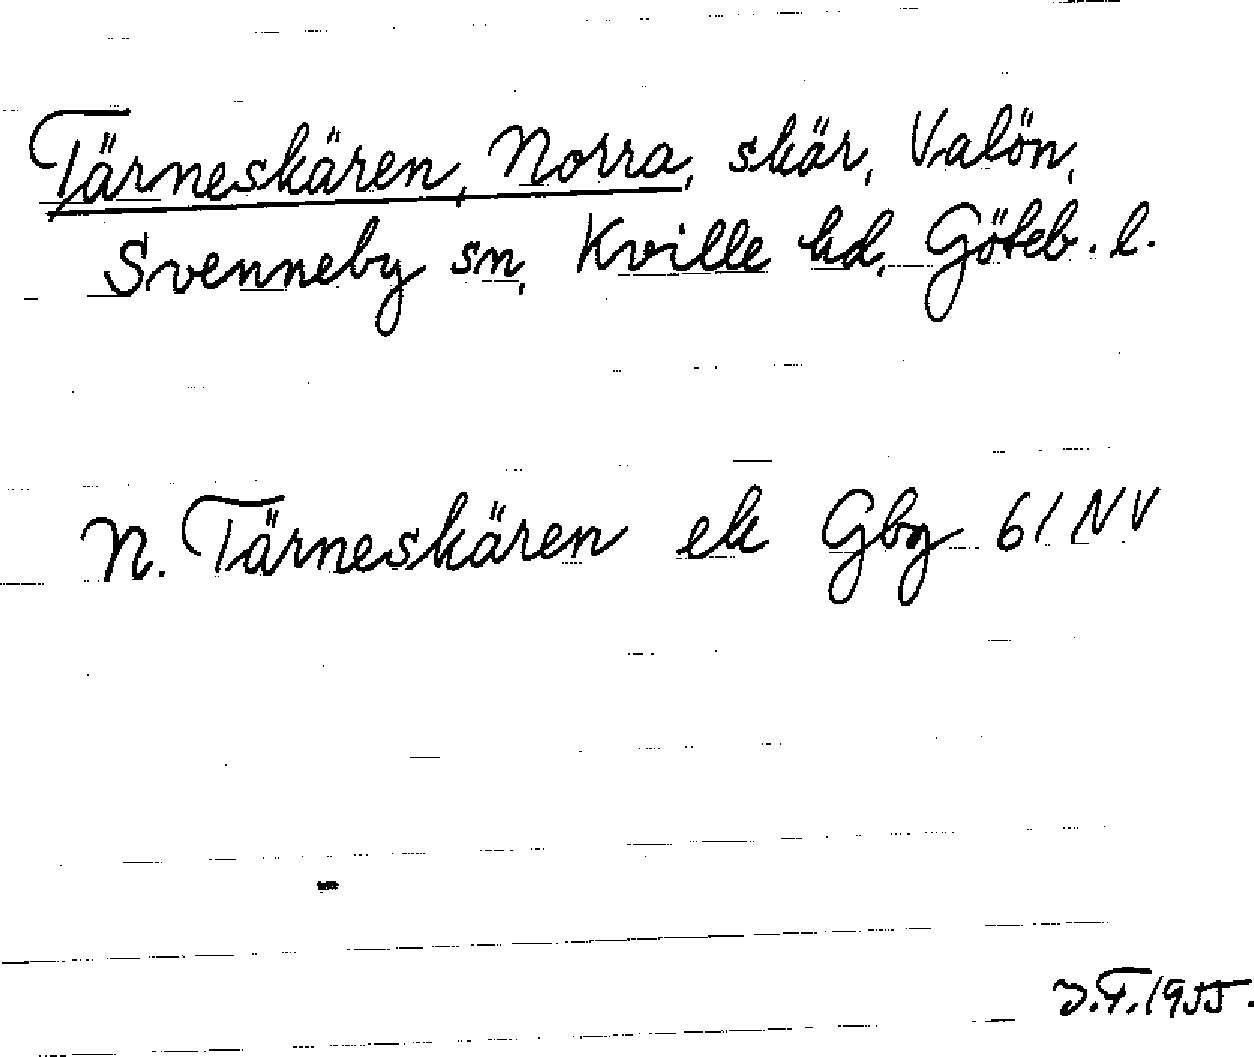 Tärneskären, Norra, skär, Valön,
Svenneby sn, Kville hd, Göteb. l.
N. Tärneskären ek Gbg 61 NV
J.F. 1955.